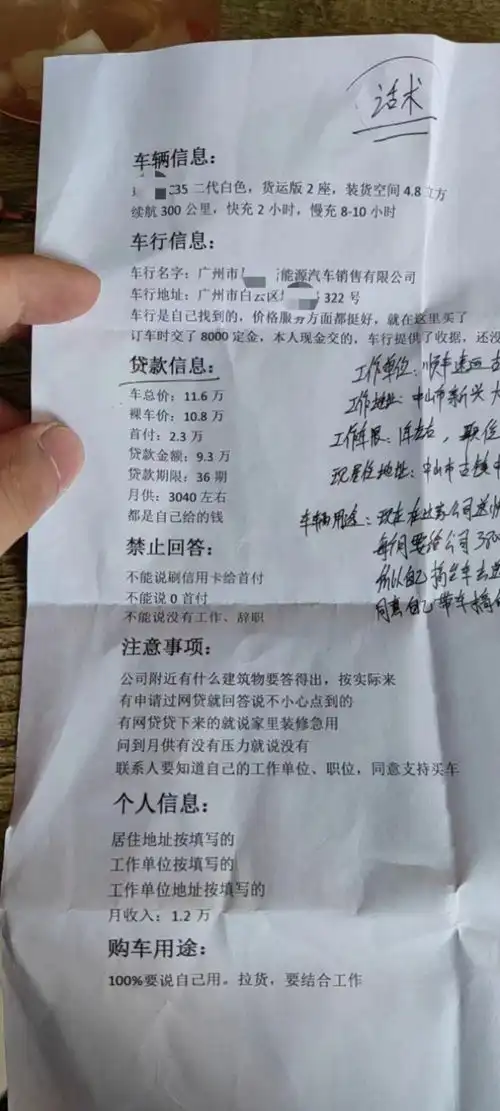 话术
车辆信息：
35 二代白色，货运版 2 座，装货空间 4.8 立方
续航 300 公里，快充 2 小时，慢充 8-10 小时
车行信息：
车行名字：广州市 能源汽车销售有限公司
车行地址：广州市白云区 322 号
车行是自己找到的，价格服务方面都挺好，就在这里买了
订车时交了 8000 定金，本人现金交的，车行提供了收据，还没
贷款信息：
车总价：11.6 万
裸车价：10.8 万
首付：2.3 万
贷款金额：9.3 万
贷款期限：36 期
月供：3040 左右
都是自己给的钱
工作单位：顺丰速运
工作地址：中山市新兴大
工作年限：年左右，职位
现居住地址：中山市古镇
车辆用途：现在在这家公司送
每月要给公司
所以自己搞台车去
同意自己带车
禁止回答：
不能说刷信用卡给首付
不能说 0 首付
不能说没有工作、辞职
注意事项：
公司附近有什么建筑物要答得出，按实际来
有申请过网贷就回答说不小心点到的
有网贷贷下来的就说家里装修急用
问到月供有没有压力就说没有
联系人要知道自己的工作单位、职位，同意支持买车
个人信息：
居住地址按填写的
工作单位按填写的
工作单位地址按填写的
月收入：1.2 万
购车用途：
100%要说自己用。拉货，要结合工作